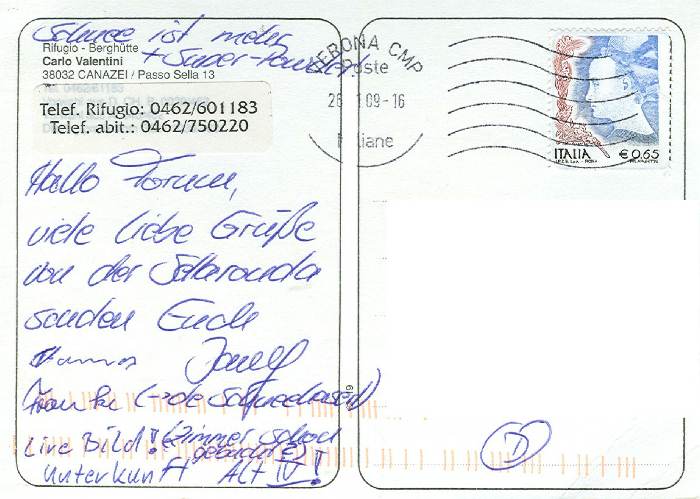 Schnee ist mehr
+ Super-Powder!
Rifugio - Berghütte
Carlo Valentini
38032 CANAZEI / Passo Sella 13
Telef. Rifugio: 0462/601183
Telef. abit.: 0462/750220
Hallo Forum,
viele liebe Grüße
von der Sellaronda
senden Euch
Hannes Josef
(→de Schneehaserl)
Live Bild! (Zimmer schon
gebucht
Unterkunft Alt IV!
VERONA CMP
Poste
26 1.09-16
Italiane
ITALIA € 0,65
D